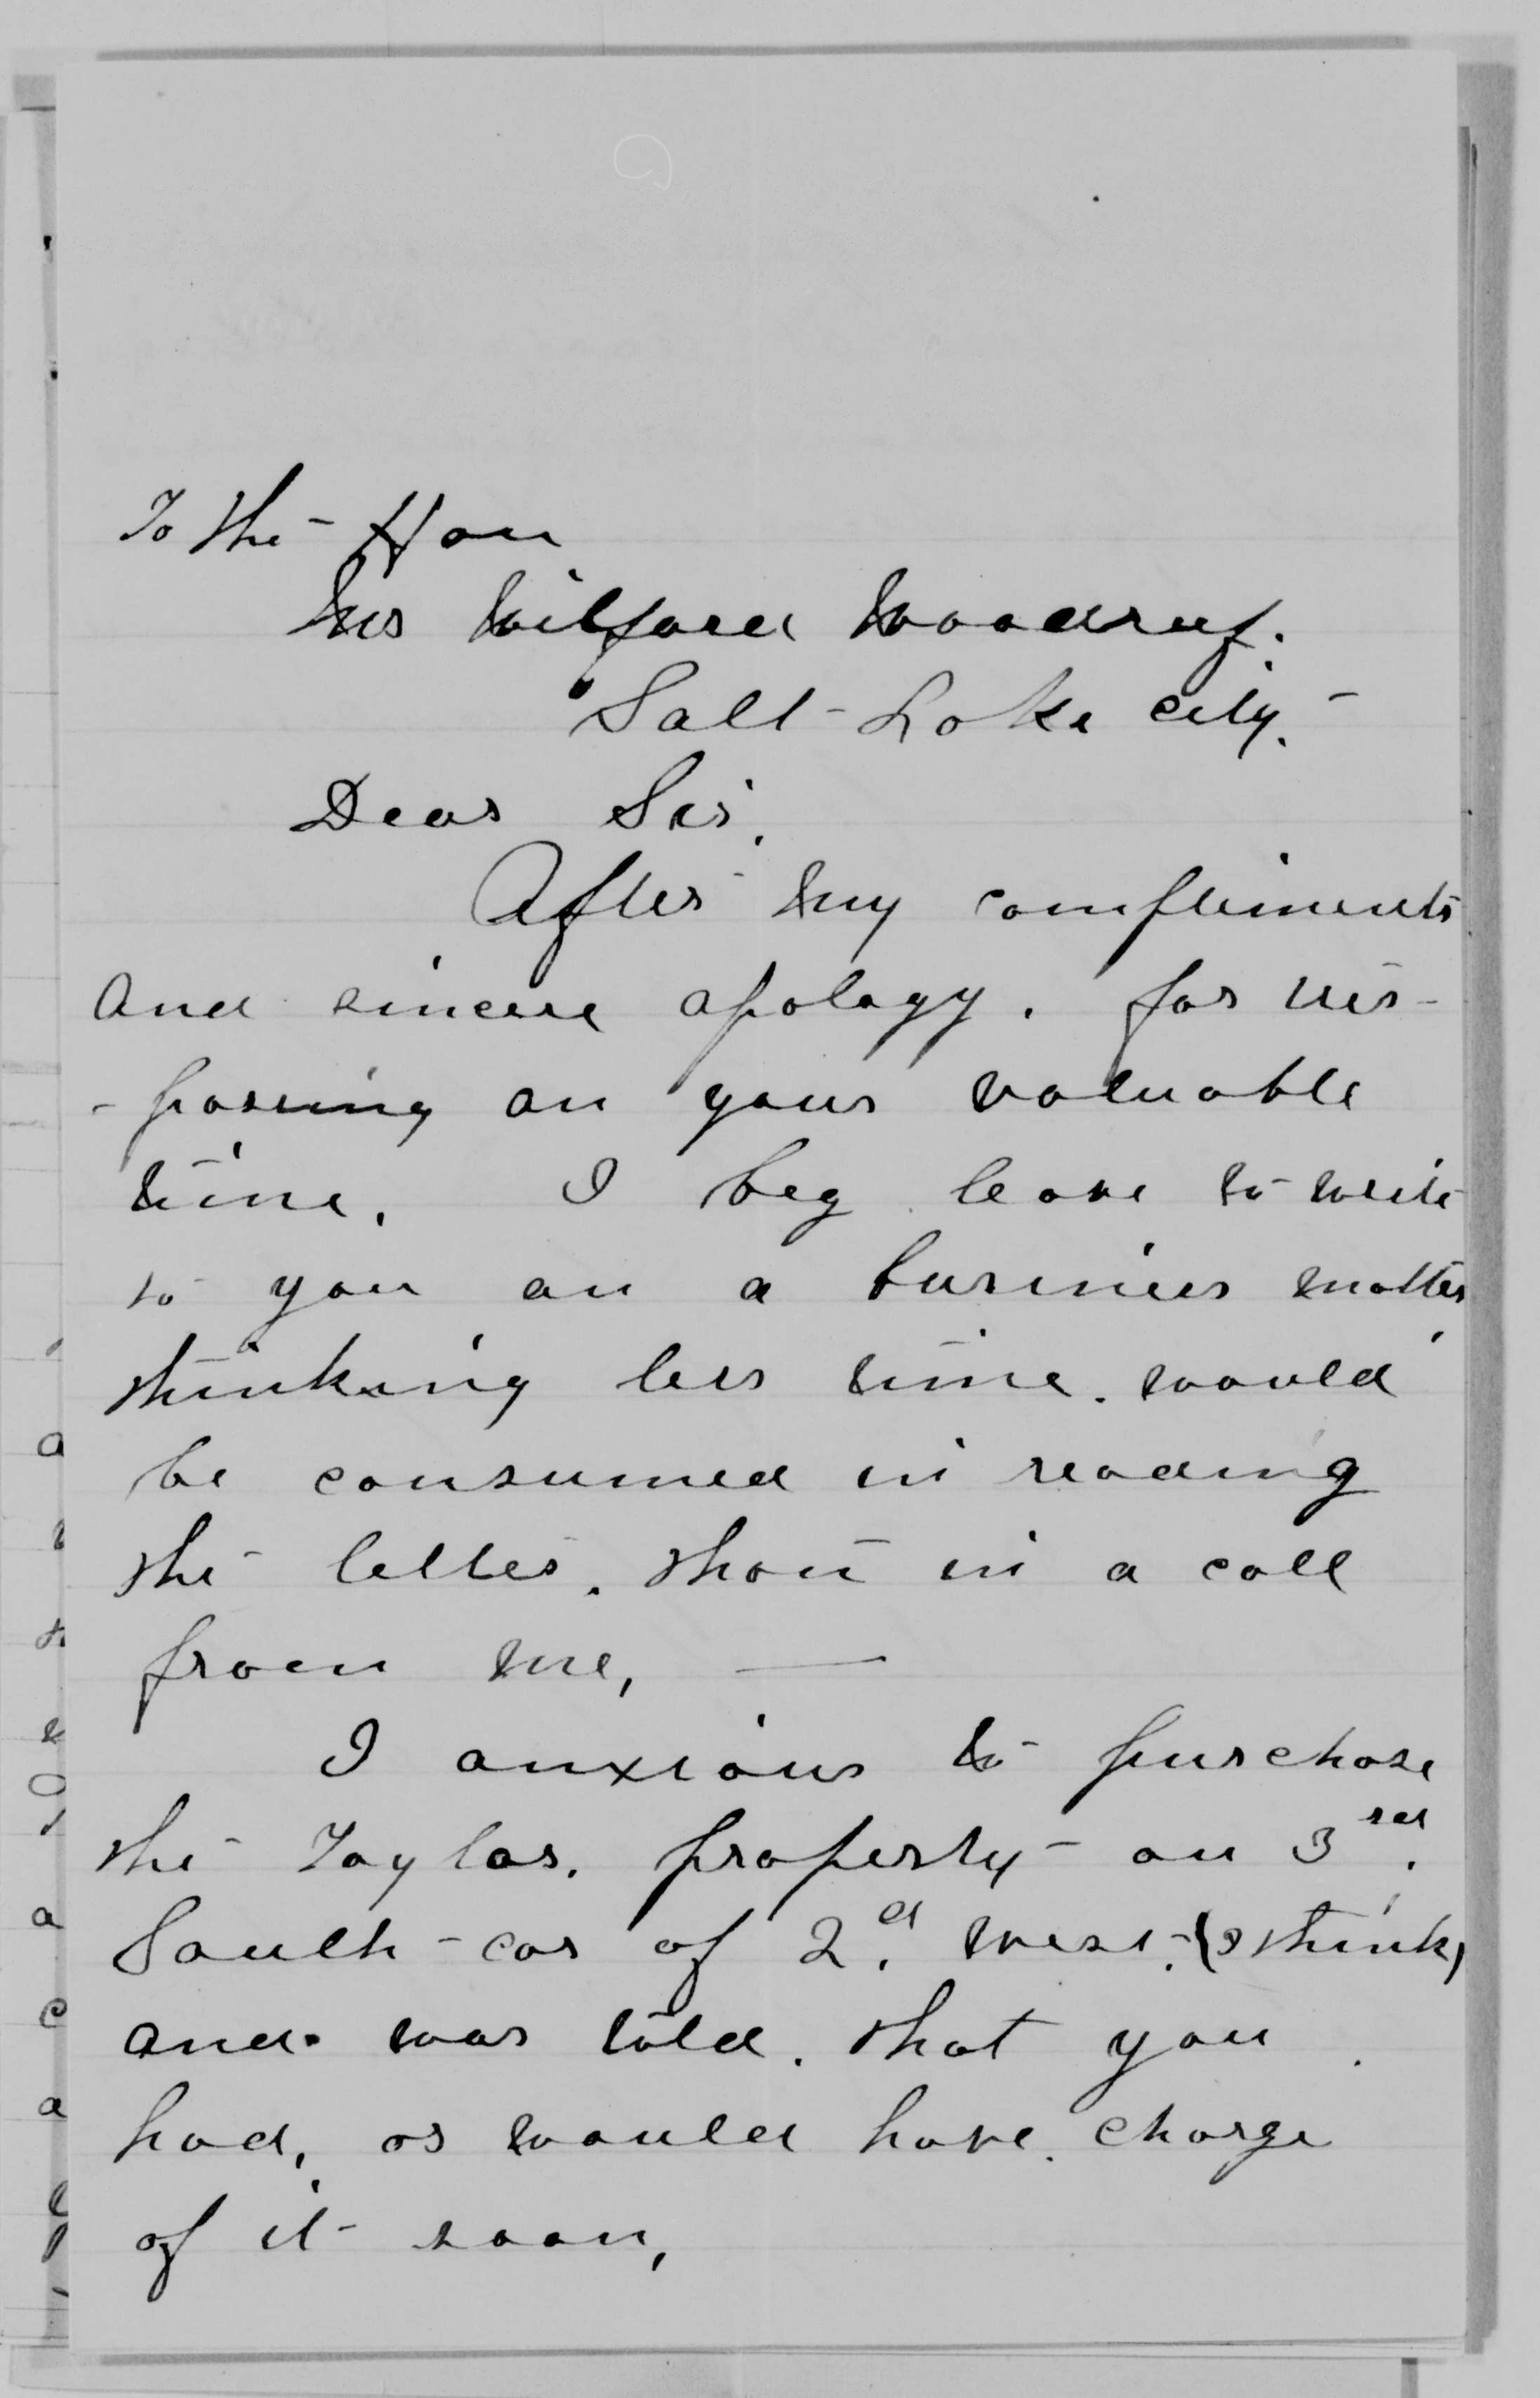 To the Hon
Mr Wilford Woodruf.
Salt Lake city.
Dear Sir,
After my compliments
and sincere apology. for tres-
-passing on your valuable
time. I beg leave to write
to you on a business matter
thinking less time. would
be consumed in reading
the letter. than in a call
from me, —
I anxious to purchase
the Taylor. property on 3rd.
South - cor of 2.d West. (I think)
and was told. that you
had, or would have. charge
of it soon,